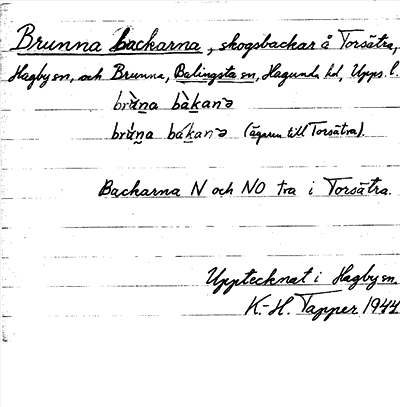 Brunna backarna, skogsbackar å Torsätra,
Hagby sn, och Brunna, Balingsta sn, Hagunda hd, Upps. l.
brùn̲a bàk̲anə
brùn̲a bák̲anə (ägaren till Torsätra).
Backarna N och NO tra i Torsätra.
Upptecknat i Hagby sn.
K.-H. Tapper 1944